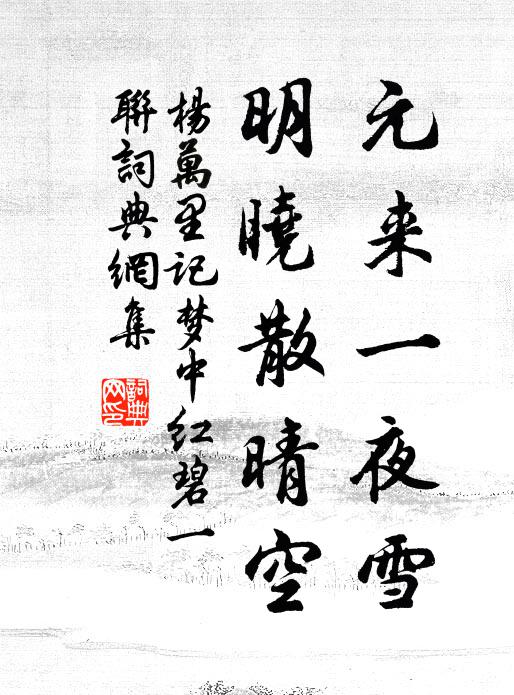 元来一夜雪
明曉散晴空
楊萬里记梦中红碧一
聯詞典網集
詞典网印